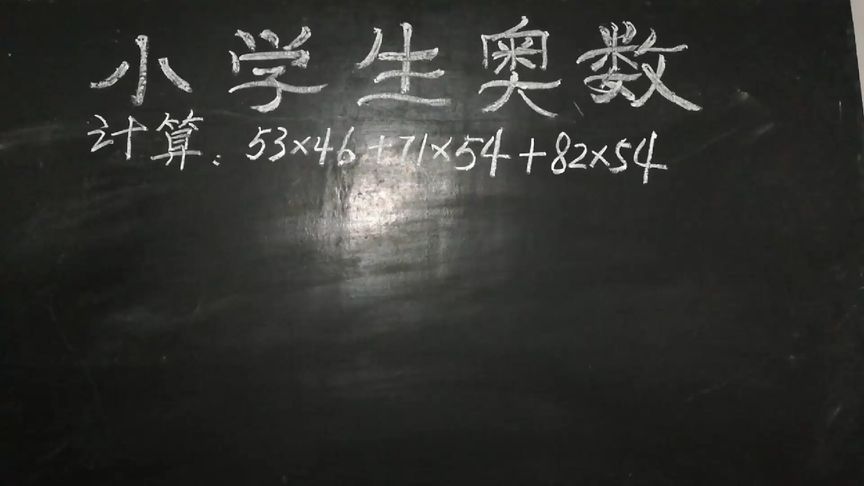 小学生奥数
计算：53×46+71×54+82×54